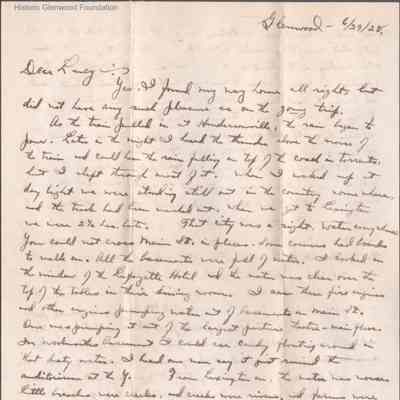 Historic Glenwood Foundation
Glenwood - 6/29/28.
Dear Lucy :-
Yes, I found my way home all right, but
did not have any such pleasure as on the going trip.
As the train pulled in at Hendersonville, the rain began to
pour. Late in the night I heard the thunder above the noise of
the train and could hear the rain falling on top of the coach in torrents,
but I slept through most of it. When I waked up at
day light we were standing still out in the country some where,
and the track had been washed out. When we got to Lexington
we were 2½ hrs. late. That city was a sight. Water everywhere
You could not cross Main St. in places. Some corners had boards
to walk on. All the basements were full of water. I looked in
the window of the Lafayette Hotel and the water was clear over the
top of the tables in their dining room. I saw three fire engines
and other engines pumping water out of basements on Main St.
One was pumping it out of the largest picture theatre - main floor.
In Woolworths basement I could see candy floating around in
that dirty water. I heard one man say it just ruined the
auditorium at the Y. From Lexington on, the water was worse
little branches were creeks, and creeks were rivers, and farms were